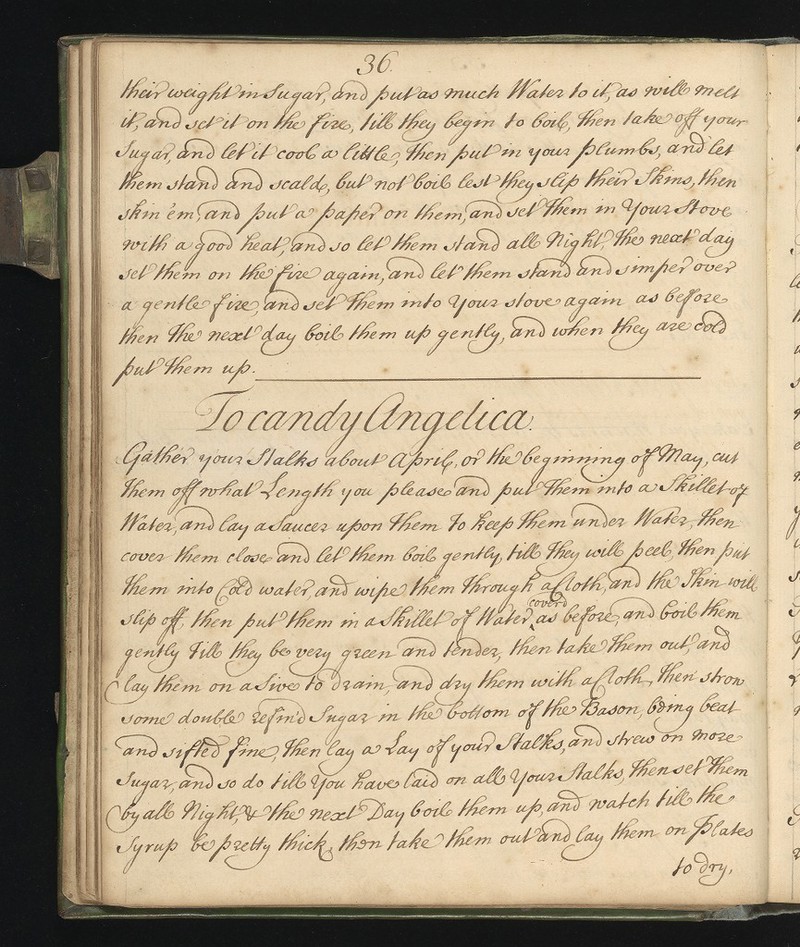 36.
their weight in Sugar, and put as much Water to it, as will melt
it, and set it on the fire, till they begin to boil, then take off your
Sugar, and let it cool a little, Then put in your plumbs, and let
them stand and scald, but not boil lest they slip their Skins, then
skin 'em, and put a paper on them, and set them in Your Stove
with a good heat, and so let them stand all Night, The next day
set them on the fire again, and let them stand and simper over
a gentle fire, and set them into Your stove again as before
then The next day boil them up gently, and when they are cold
put Them up.
To candy Angelica.
Gather your Stalks about April, or the beginning of May, cut
Them off what Length you please and put Them into a Skillet of
Water, and lay a Saucer upon Them To keep Them under Water, Then
cover them close and let Them boil gently, till They will peel, Then put
Them into Cold water, and wipe them Through a Cloth, and the Skin will
slip off, then put them in a Skillet of Water, coverd as before, and boil them
gently Till they be very green and tender, then take Them out, and
lay them on a Sive to drain, and dry them with a Cloth, Then strow
some double refin'd Sugar in the bottom of the Bason, being beat
and sifted fine, Then lay a Lay of your Stalks, and strew on more
Sugar, and so do till You have laid on all Your Stalks, Then set Them
by all Night, & the next Day boil them up, and watch till the
Syrup be pretty thick, then take them out and lay them on Plates
to dry,